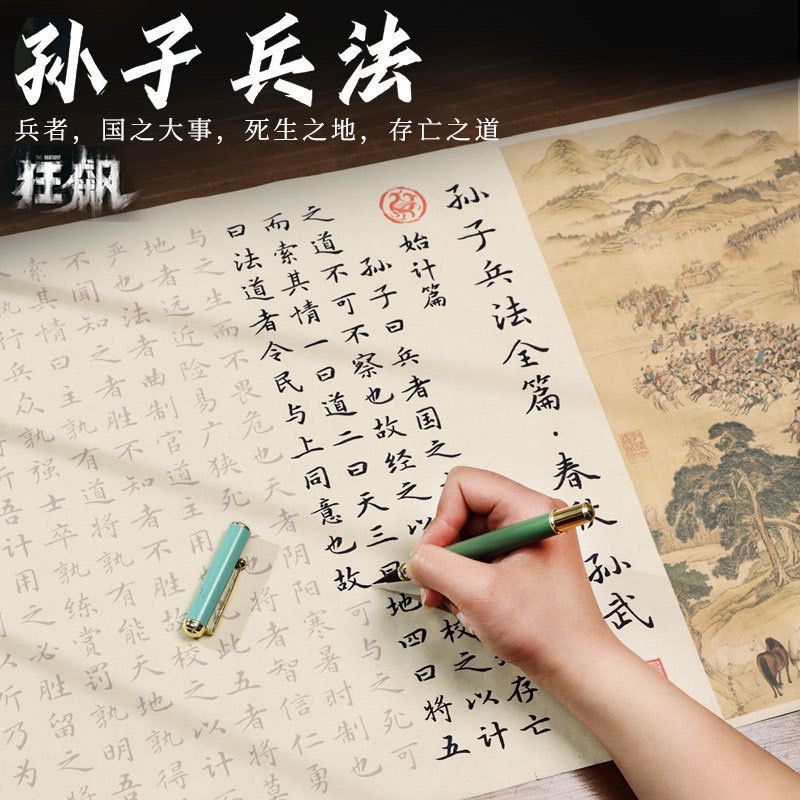 孙子兵法
兵者，国之大事，死生之地，存亡之道
狂飙
孙子兵法全篇·春秋 孙武
始计篇
孙子曰兵者国之 存亡
之道不可不察也故经之以 校之以计
而索其情一曰道二曰天三曰地四曰将五
曰法道者令民与上同意也故 可与之死可
与之生而不畏危也天者阴阳寒暑时制
地者远近险易广狭死 也将者智信仁勇
严也法者曲制官道主用 此五者将莫
不闻知之者胜不知者不胜故校之以计
索其情曰主孰有道将孰有能天地孰得
孰行兵众孰强士卒孰练赏罚孰明吾
听吾计用之必胜留之
乃为